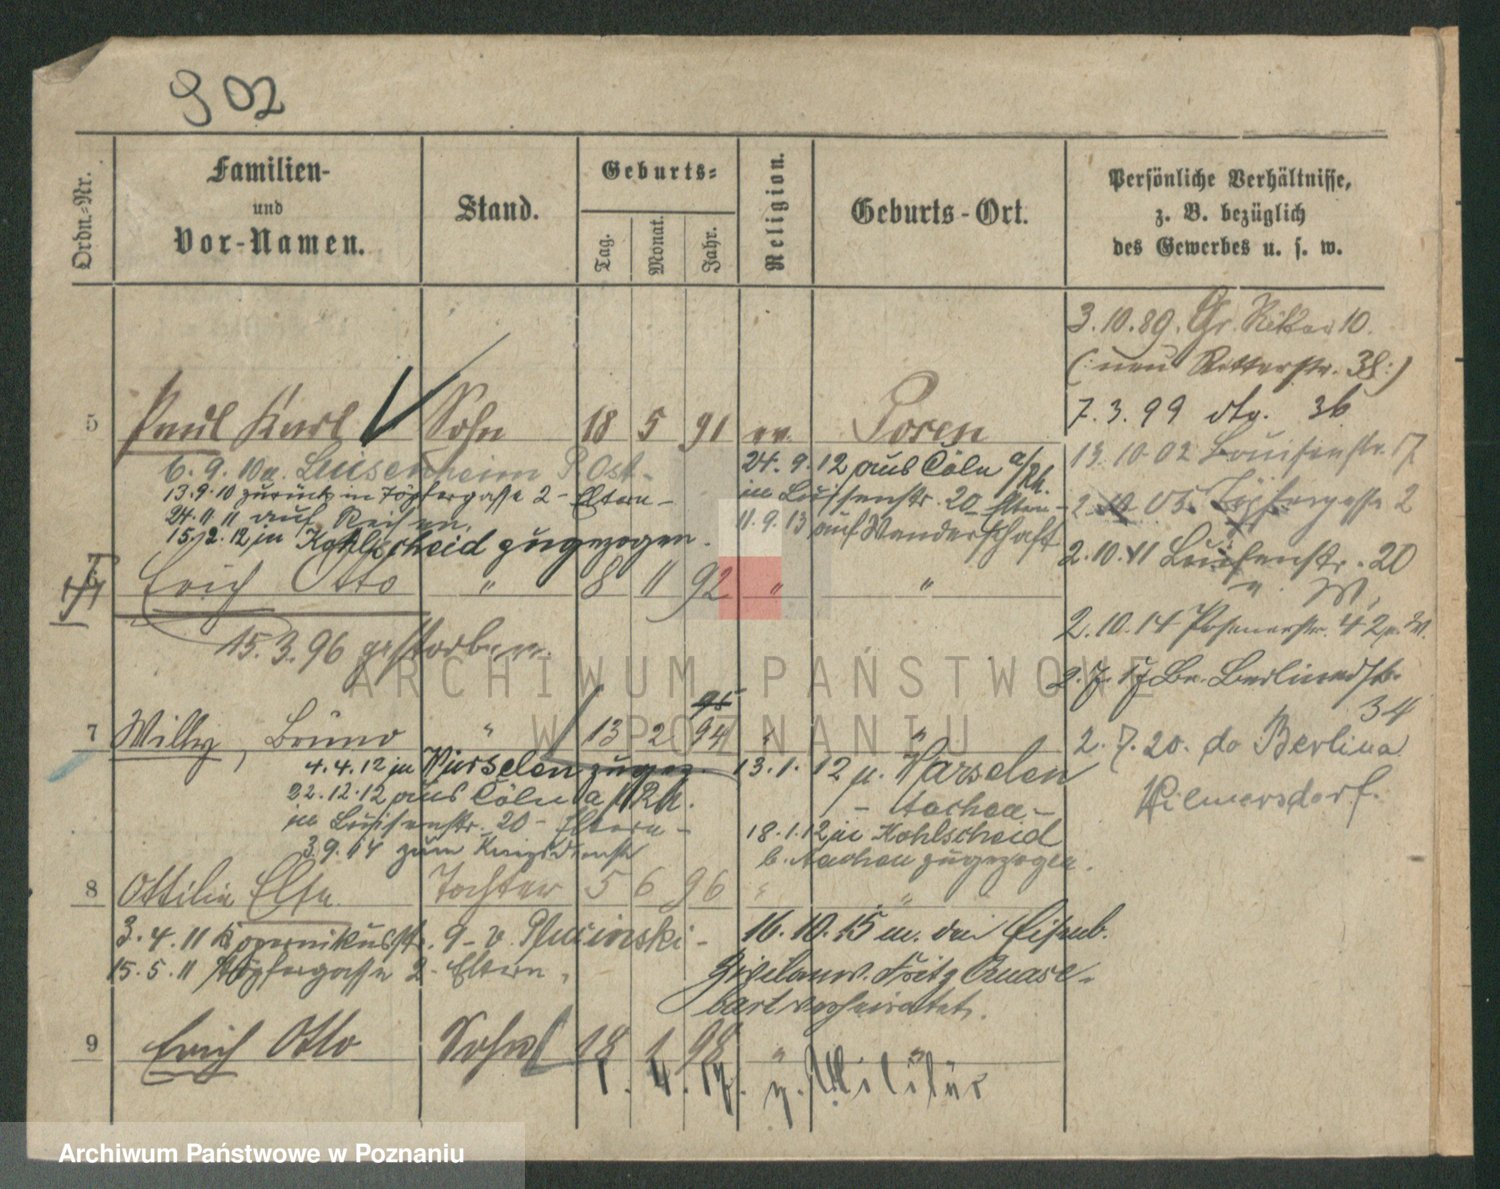 902
Ordn.-Nr.
Familien-
und
Vor-Namen.
Stand.
Geburts-
Tag.
Monat.
Jahr.
Religion.
Geburts-Ort.
Persönliche Verhältnisse,
z. B. bezüglich
des Gewerbes u. s. w.
3.10.89. Gr. Ritter 10.
(: neu Ritterstr. 38:)
7.3.99 dto. 36
13.10.02 Louisenstr. 17
2. 05. Töpfergasse 2
2.10.11 Luisenstr. 20
2.10.14 Posenerstr. 42
2.7.17 Berlinerstr.
34
2.7.20. do Berlin
Wilmersdorf.
5 Paul Karl Sohn 18 5 91 ev. Posen
6.9.10 Luisenhein P. Ost-
13.9.10 zurück in Töpfergasse 2 - Eltern -
24.11.11 auf Reisen.
15.2.12 in Kohlscheid zugezogen.
24.9.12 aus Cöln a/Rh.
in Luisenstr. 20 Eltern -
11.9.13 auf Wanderschaft
Erich Otto " 8 11 92 " "
15.3.96 gestorben.
7 Willy, Bruno " 13 2 95 94 " "
4.4.12 in Würselen zugez.
22.12.12 aus Cöln a/Rh.
in Luisenstr. 20 - Eltern -
3.9.14 zum Kriegsdienst
13.1.12 n. Warselen
- Aachen -
18.1.12 in Kohlscheid
b. Aachen zugezogen.
8 Ottilie Elsa Tochter 5 6 96 " "
3.4.11 Kopernikusstr. 9 - v. Pfucinski -
15.5.11 Töpfergasse 2 - Eltern.
16.10.15 m. den Eisenb.
Zivilanw. Fritz
verheiratet.
9 Erich Otto Sohn 18 1 98 " "
1.4.17. z. Militär
ARCHIWUM PAŃSTWOWE
W POZNANIU
Archiwum Państwowe w Poznaniu